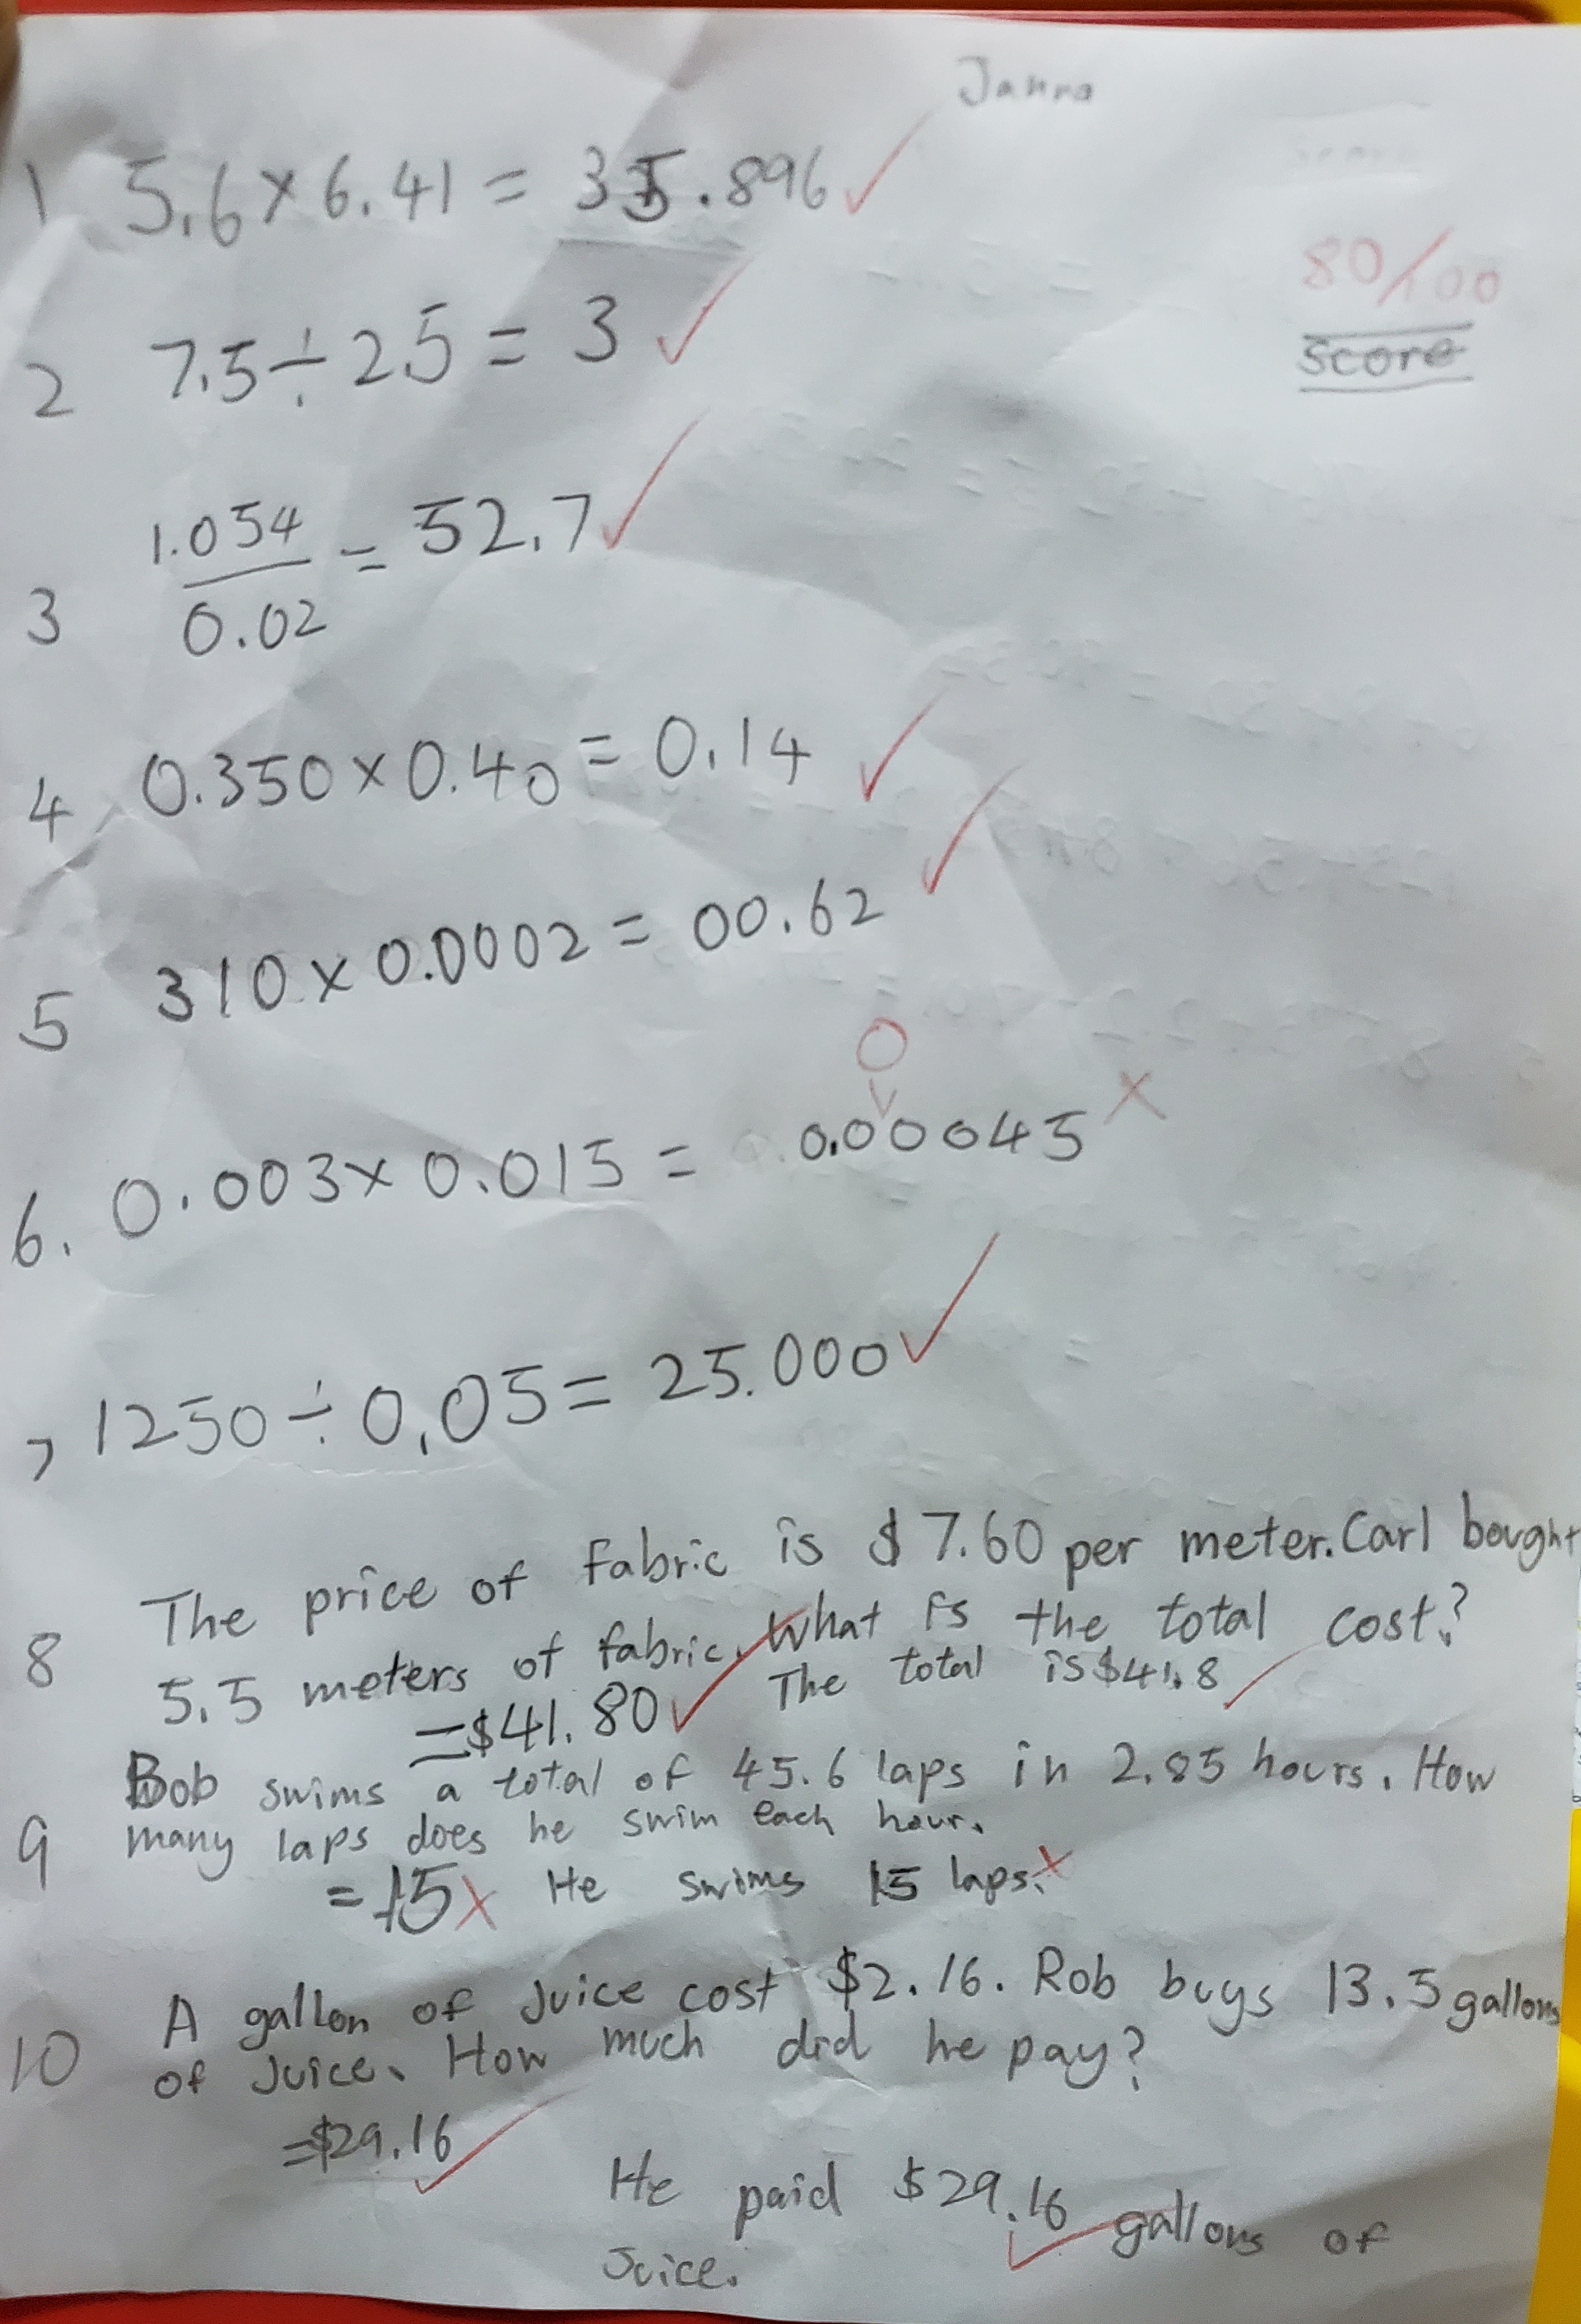 Janna
1 5.6 × 6.41 = 35.896
80/100
score
2 7.5 ÷ 2.5 = 3
3 1.054 / 0.02 = 52.7
4 0.350 × 0.40 = 0.14
5 310 × 0.0002 = 00.62
0
6. 0.003 × 0.015 = 0.00045
7 1250 ÷ 0.05 = 25.000
8 The price of fabric is $7.60 per meter. Carl bought
5.5 meters of fabric. What is the total cost?
= $41.80 The total is $41.8
9 Bob swims a total of 45.6 laps in 2.85 hours. How
many laps does he swim each hour.
= 15 He swims 15 laps.
10 A gallon of Juice cost $2.16. Rob buys 13.5 gallons
of Juice. How much did he pay?
= $29.16
He paid $29.16 gallons of
Juice.